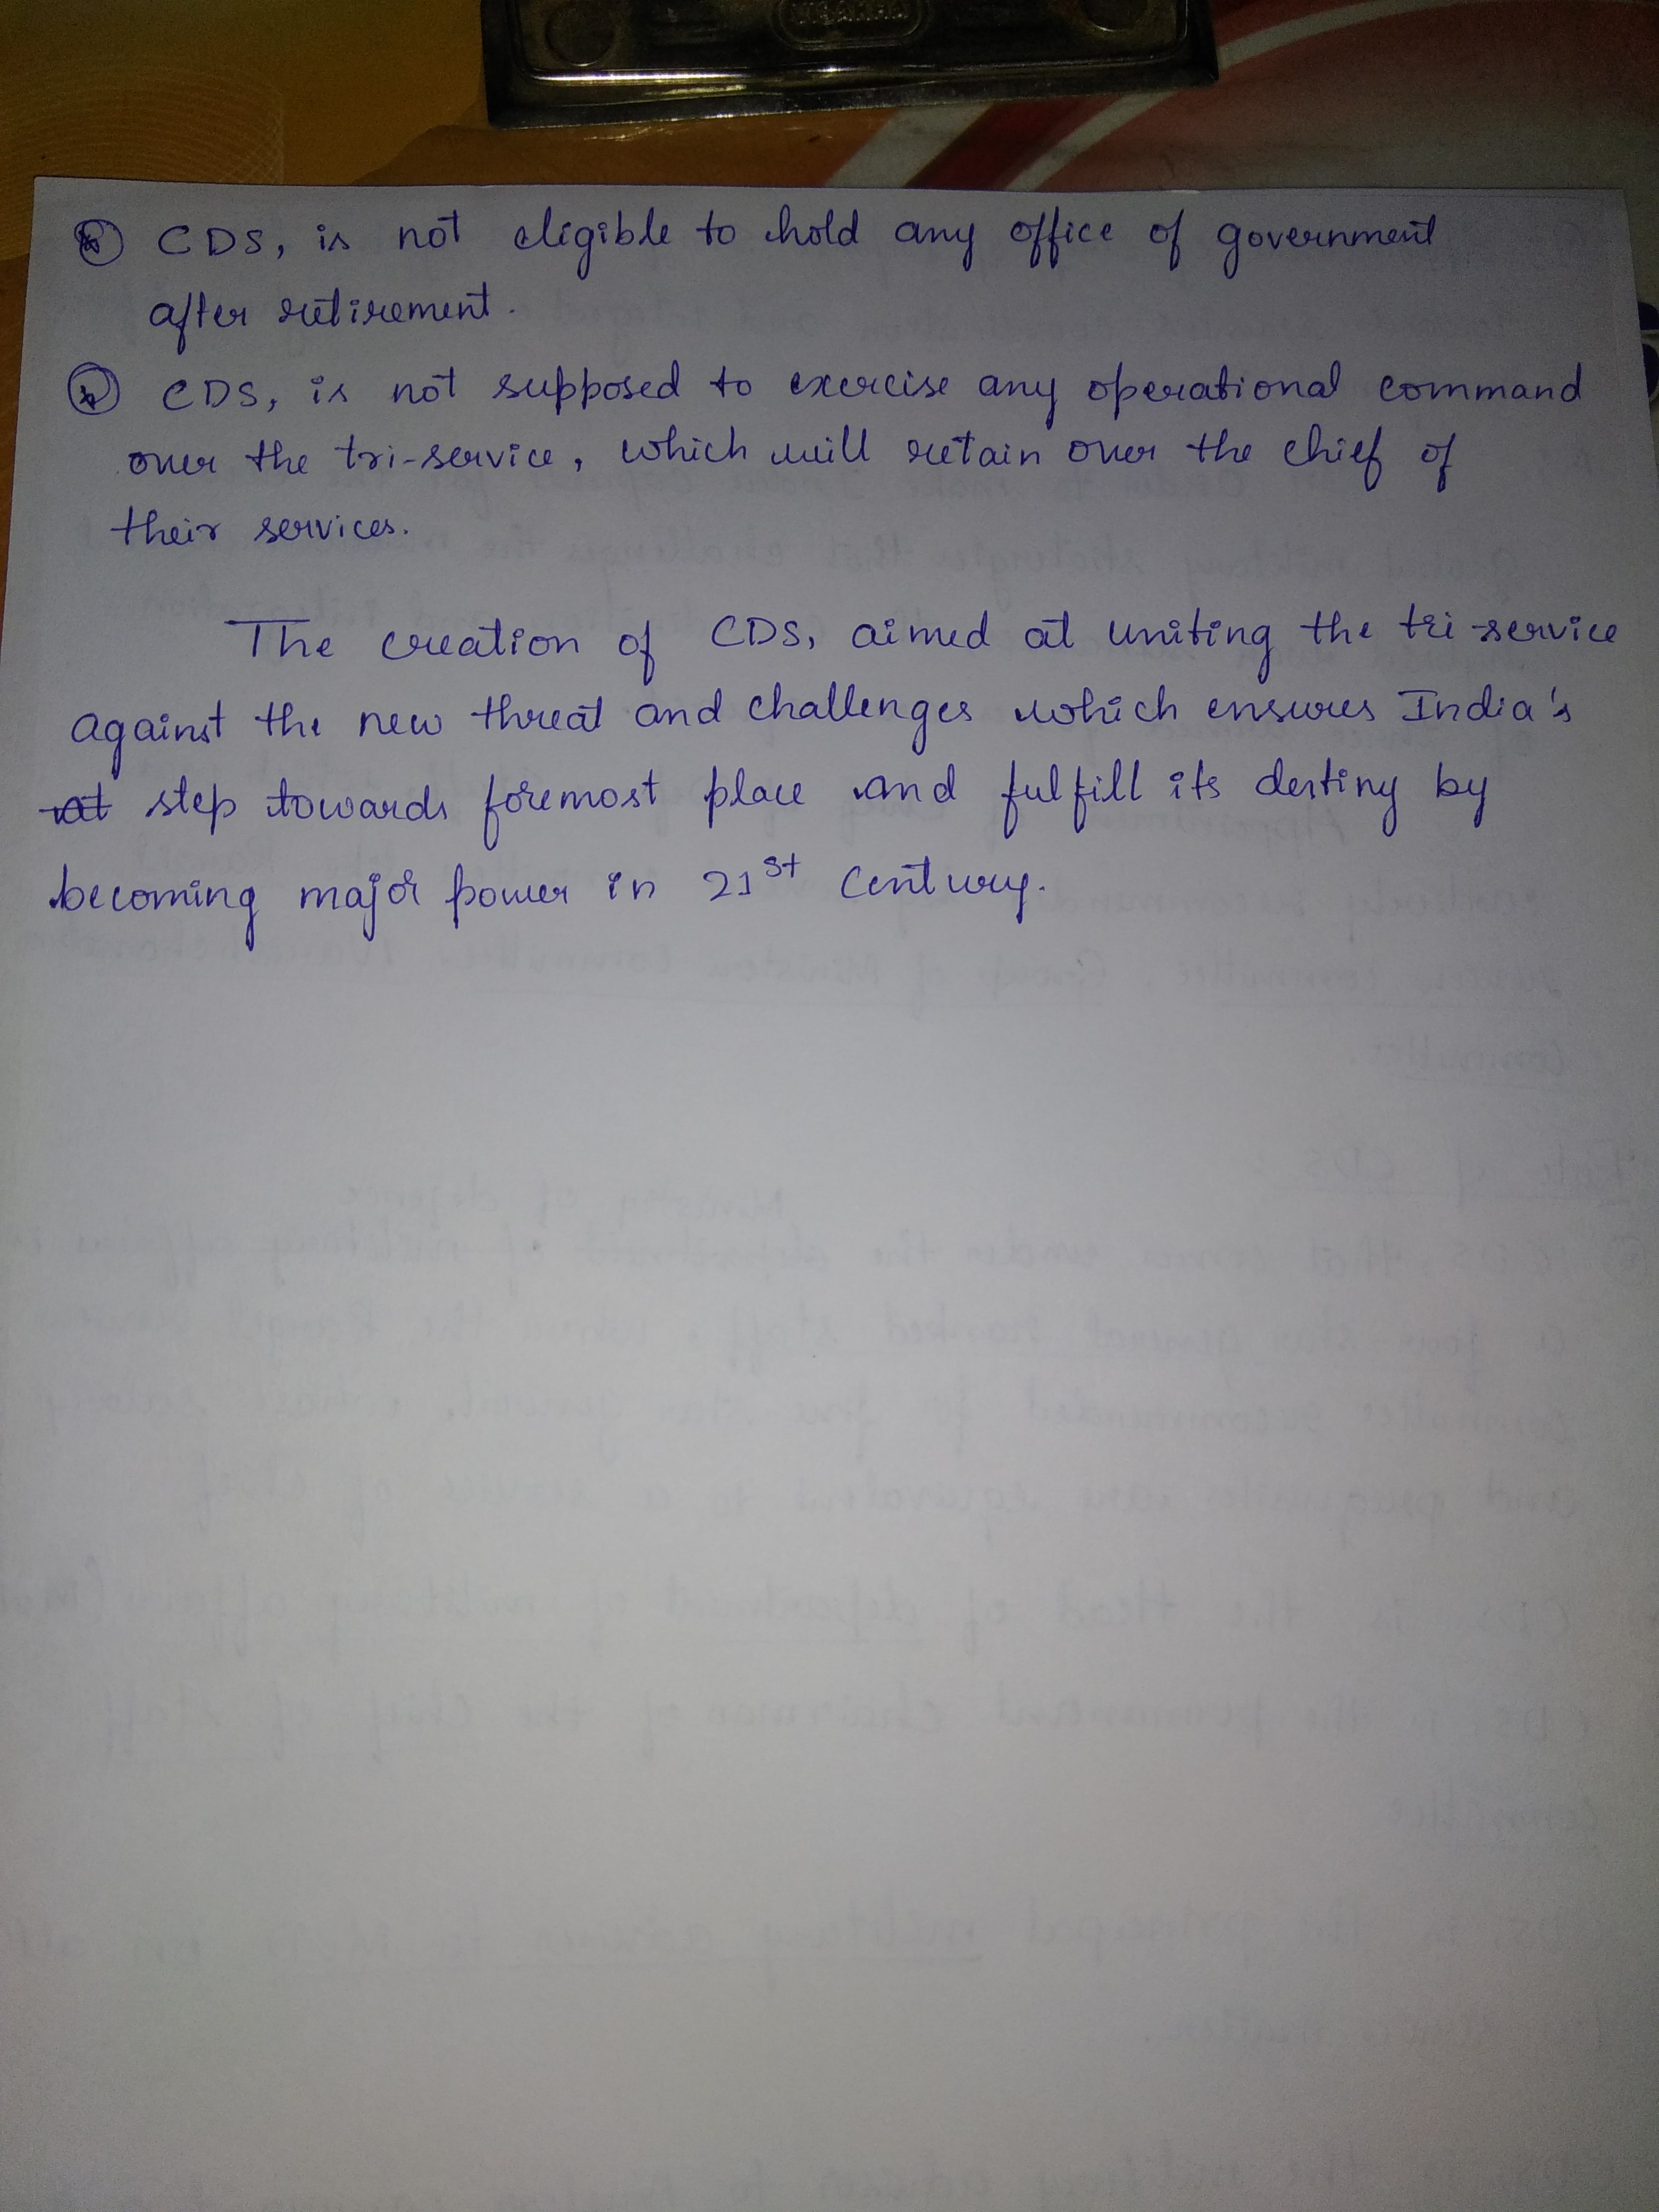 CDS, is not eligible to hold any office of government
after retirement.
CDS, is not supposed to exercise any operational command
over the tri-service, which will retain over the chief of
their services.
The creation of CDS, aimed at uniting the tri-service
against the new threat and challenges which ensures India's
step towards foremost place and fulfill its destiny by
becoming major power in 21st century.